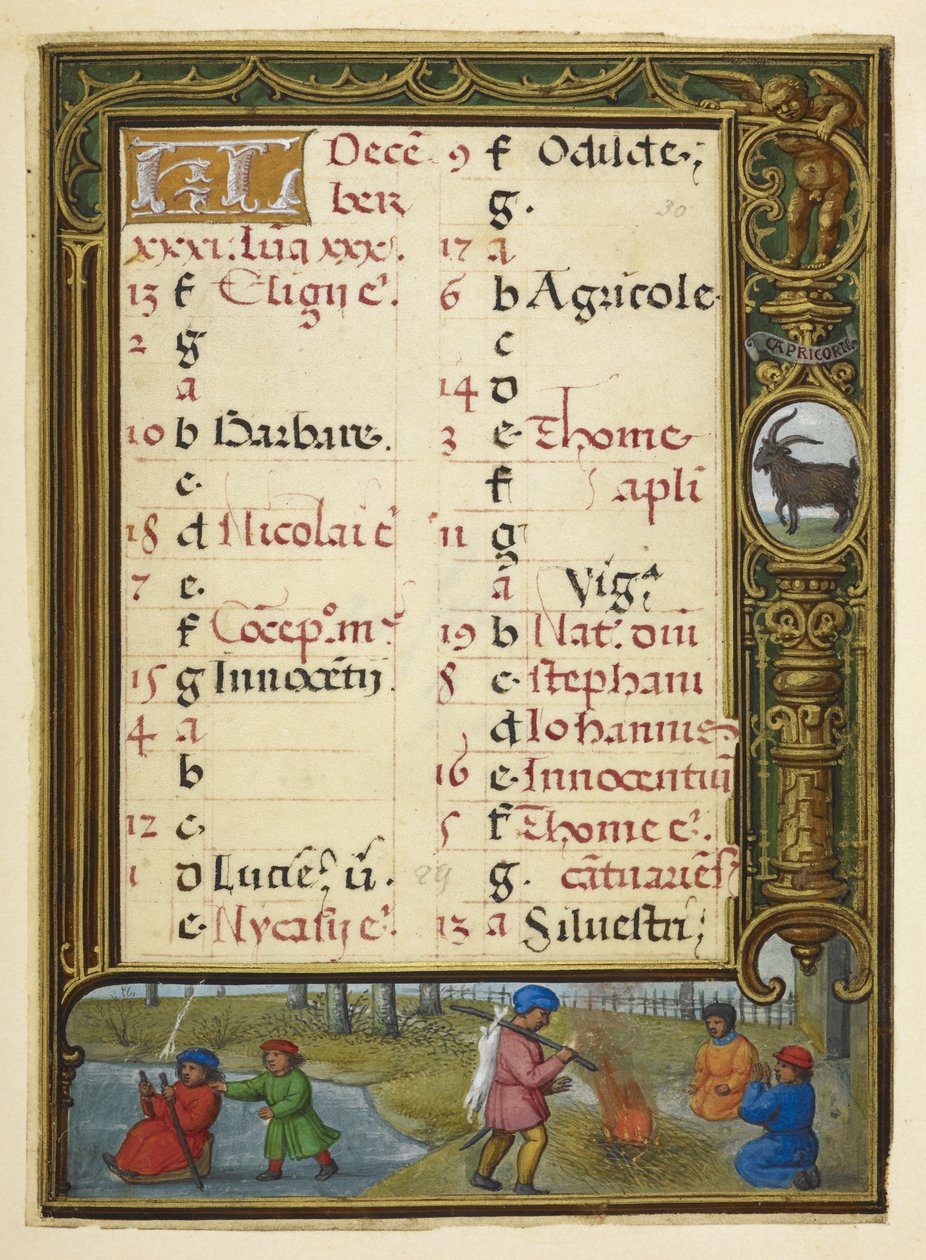 KL Decē
ber
xxxi. Lūa xxx.
13 f Eligij eꝰ.
2 g
a
10 b Barbare.
c
18 d Nicolai eꝰ
7 e
f Cōcepº. mͬ
15 g Innocētij.
4 a
b
12 c
1 d Lucie ū.
e Nycasij eꝰ.
9 f Odilde
g.
30
17 a
6 b Agricole
c
14 d
3 e Thome
f apli
11 g
a Vigᵃ
19 b Natꝰ. dm̄i
8 c Stephani
d Iohannis
16 e Innocentiū
5 f Thome eꝰ.
29 g. cātuariēs
13 a Siluestri
CAPRICORN.